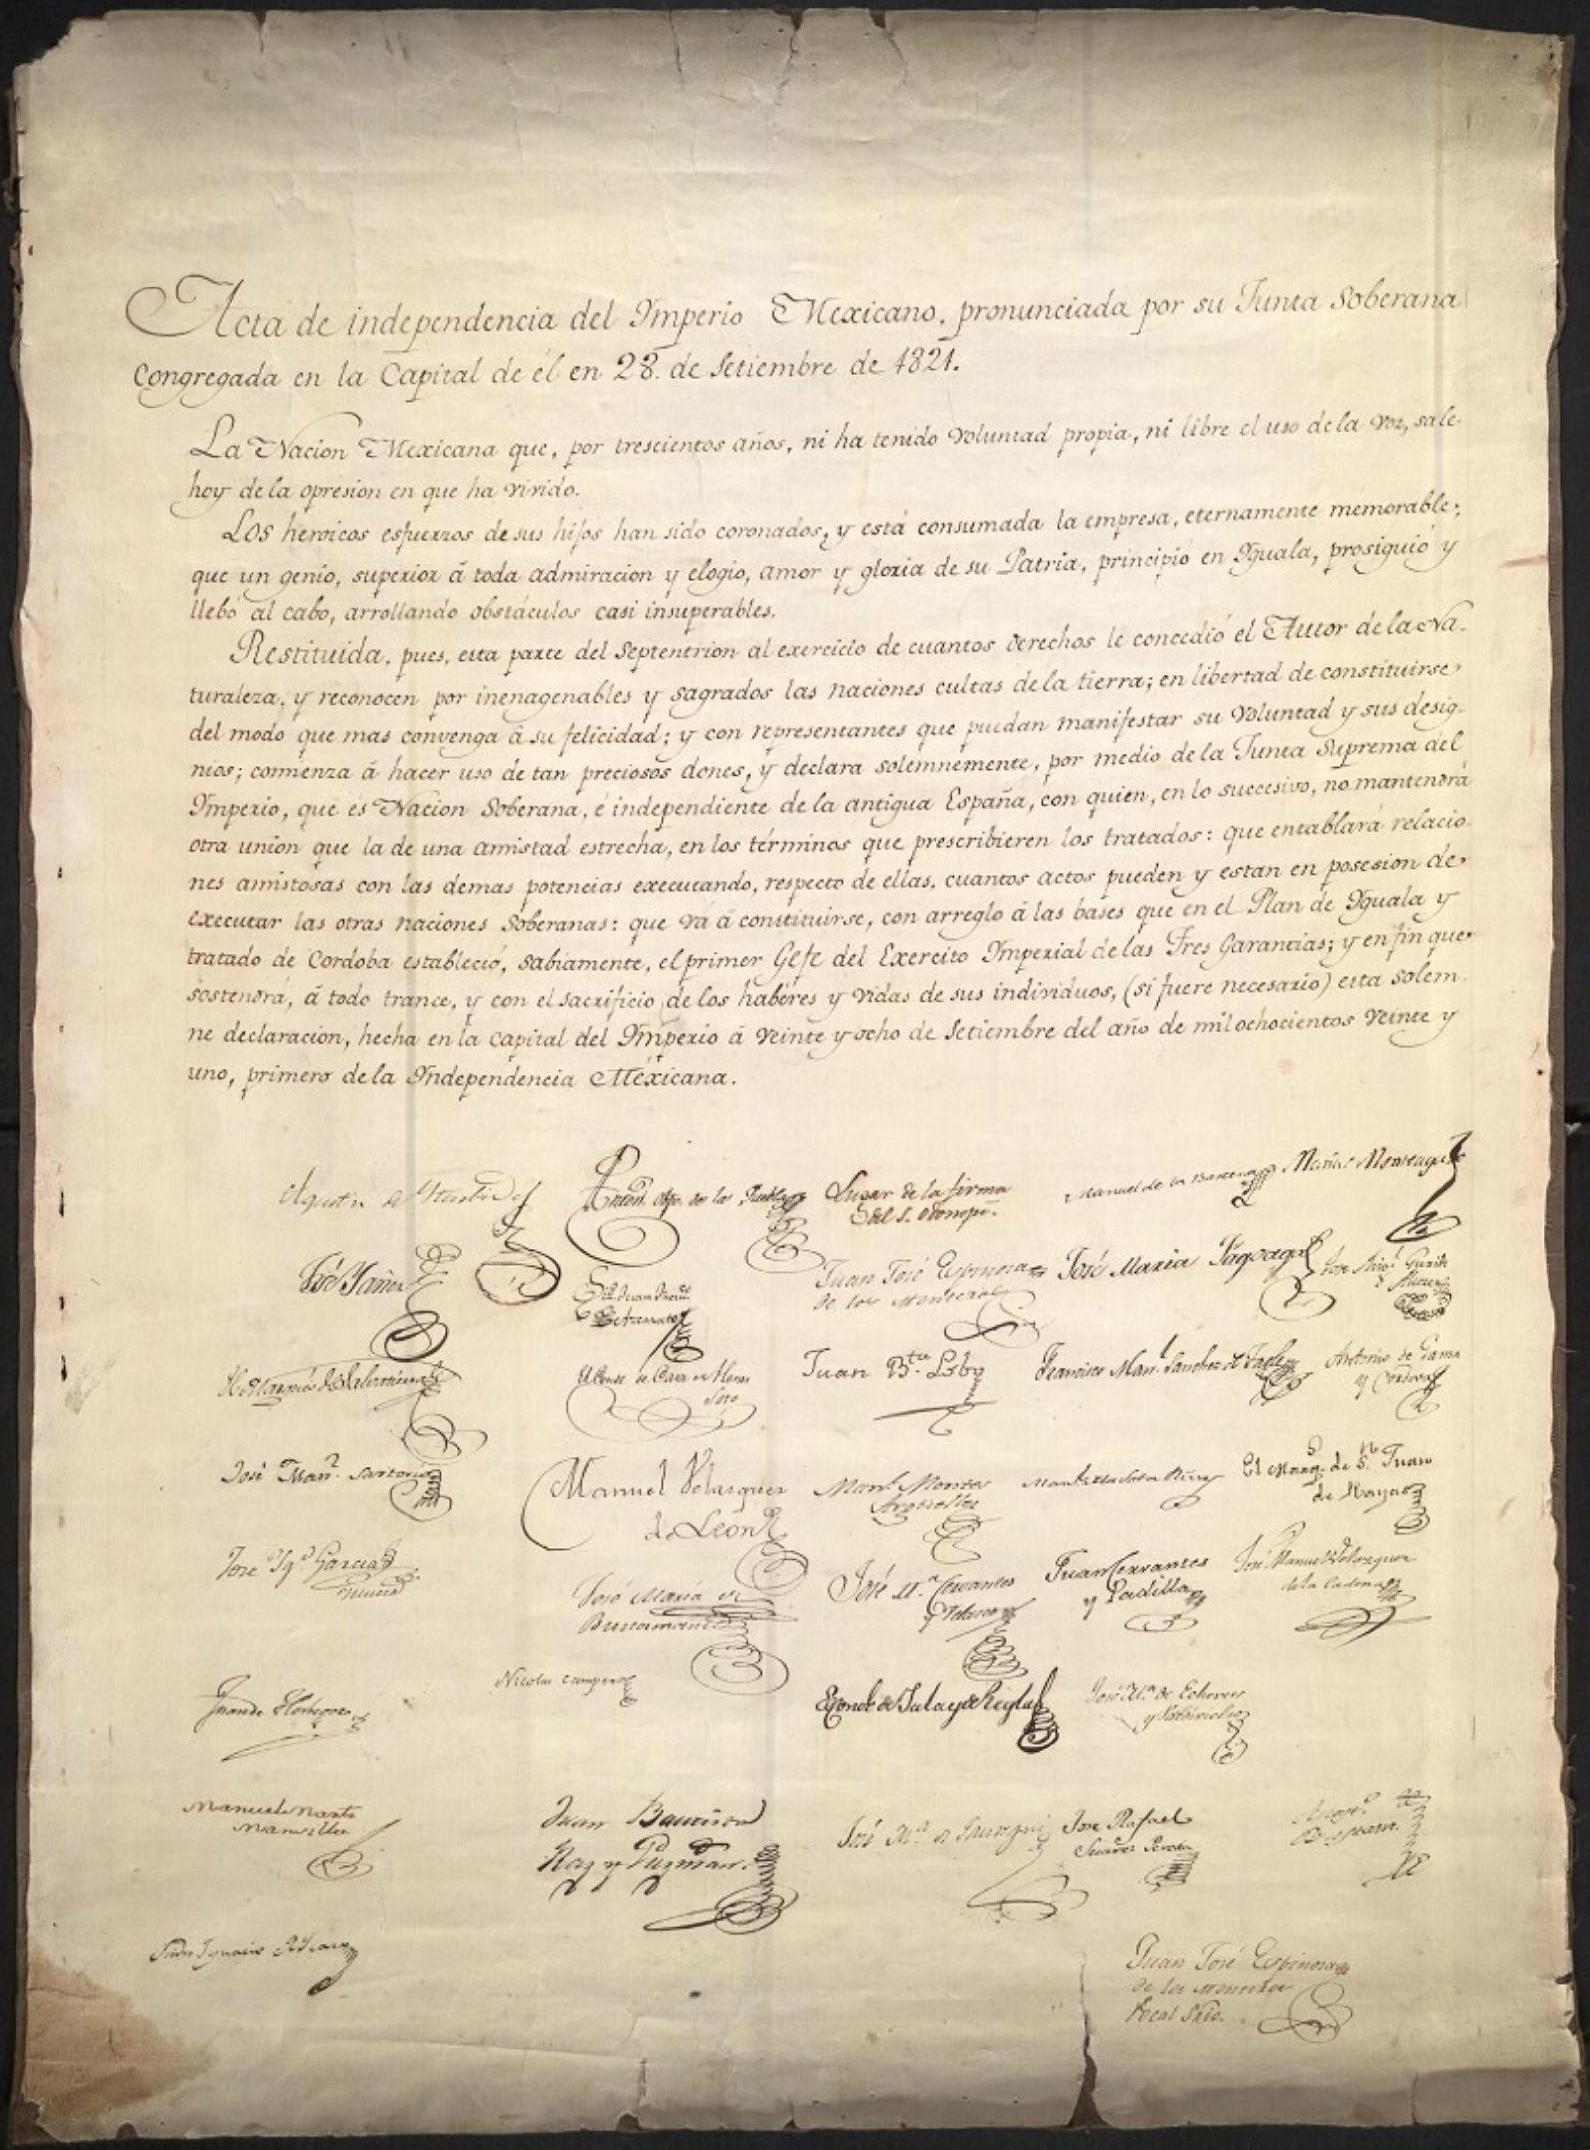 Acta de independencia del Ymperio Mexicano, pronunciada por su Junta Soberana
congregada en la Capital de él en 28. de Setiembre de 1821.
La Nacion Mexicana que, por trescientos años, ni ha tenido voluntad propia, ni libre el uso de la voz, sale
hoy de la opresion en que ha vivido.
Los heroicos esfuerzos de sus hijos han sido coronados, y está consumada la empresa, eternamente memorable,
que un genio, superior á toda admiracion y elogio, amor y gloria de su Patria, principió en Yguala, prosiguió y
llebó al cabo, arrollando obstáculos casi insuperables.
Restituida, pues, esta parte del Septentrion al exercicio de cuantos derechos le concedió el Autor de la Na-
turaleza, y reconocen por inenagenables y sagrados las naciones cultas de la tierra; en libertad de constituirse
del modo que mas convenga á su felicidad; y con representantes que puedan manifestar su voluntad y sus desig-
nios; comienza á hacer uso de tan preciosos dones, y declara solemnemente, por medio de la Junta Suprema del
Ymperio, que es Nacion Soberana, é independiente de la antigua España, con quien, en lo succesivo, no mantendrá
otra union que la de una amistad estrecha, en los términos que prescribieren los tratados: que entablará relacio-
nes amistosas con las demas potencias executando, respecto de ellas, cuantos actos pueden y estan en posesion de
executar las otras naciones Soberanas: que vá á constituirse, con arreglo á las bases que en el Plan de Yguala y
tratado de Cordoba estableció, sabiamente, el primer Gefe del Exercito Ymperial de las Tres Garantias; y en fin que
sostendrá, á todo trance, y con el sacrificio de los habéres y vidas de sus individuos, (si fuere necesario) esta solem-
ne declaracion, hecha en la capital del Ymperio á veinte y ocho de Setiembre del año de mil ochocientos veinte y
uno, primero de la Yndependencia Mexicana.
Agustin de Yturbide Anton. Obpo. de la Puebla Lugar de la firma Manuel de la Barcena Matias Monteagudo
del S. Odonojú.
José Yañez Juan Franco. Juan José Espinosa José Maria Fagoaga José Mig.l Guridi
Azcarate de los Monteros y Alcocer
Juan B.ta Lobo Francisco Man.l Sanchez de Tagle Antonio de Gama
y Cordova
José Man.l Sartorio Manuel Velazquez Man.l Montes El Marq.s de S.n Juan
de León Argüelles de Rayas
José Ygn.o Garcia José Maria de José M.a Cervantes Juan Cervantes José Manuel Velazquez
Bustamante y Velasco y Padilla de la Cadena
Juan de Horbegoso Nicolas Campero El conde de Jala y de Regla José M.a de Echevers
y Valdivielso
Manuel Martz Juan Bautista José M.a de Jauregui José Rafael
Mansilla Raz y Guzman. Suarez Pereda
Juan José Espinosa
de los Monteros
Vocal Srio.